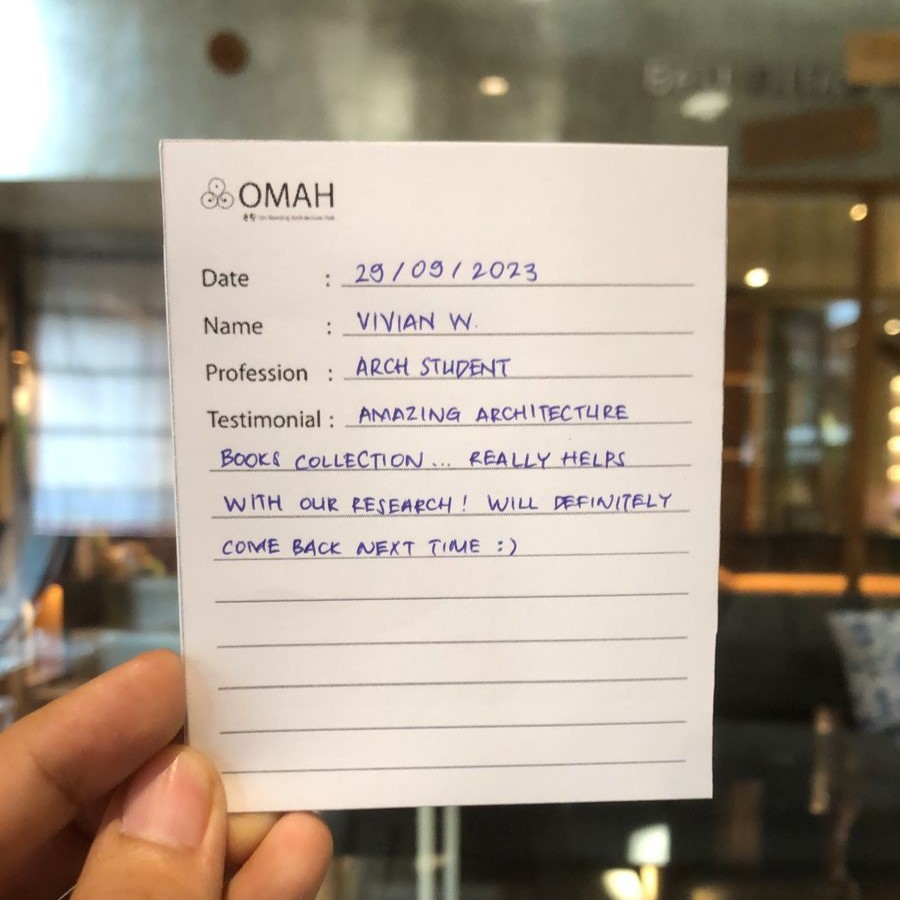 OMAH
Date : 29/09/2023
Name : VIVIAN W.
Profession : ARCH STUDENT
Testimonial : AMAZING ARCHITECTURE
BOOKS COLLECTION... REALLY HELPS
WITH OUR RESEARCH! WILL DEFINITELY
COME BACK NEXT TIME :)